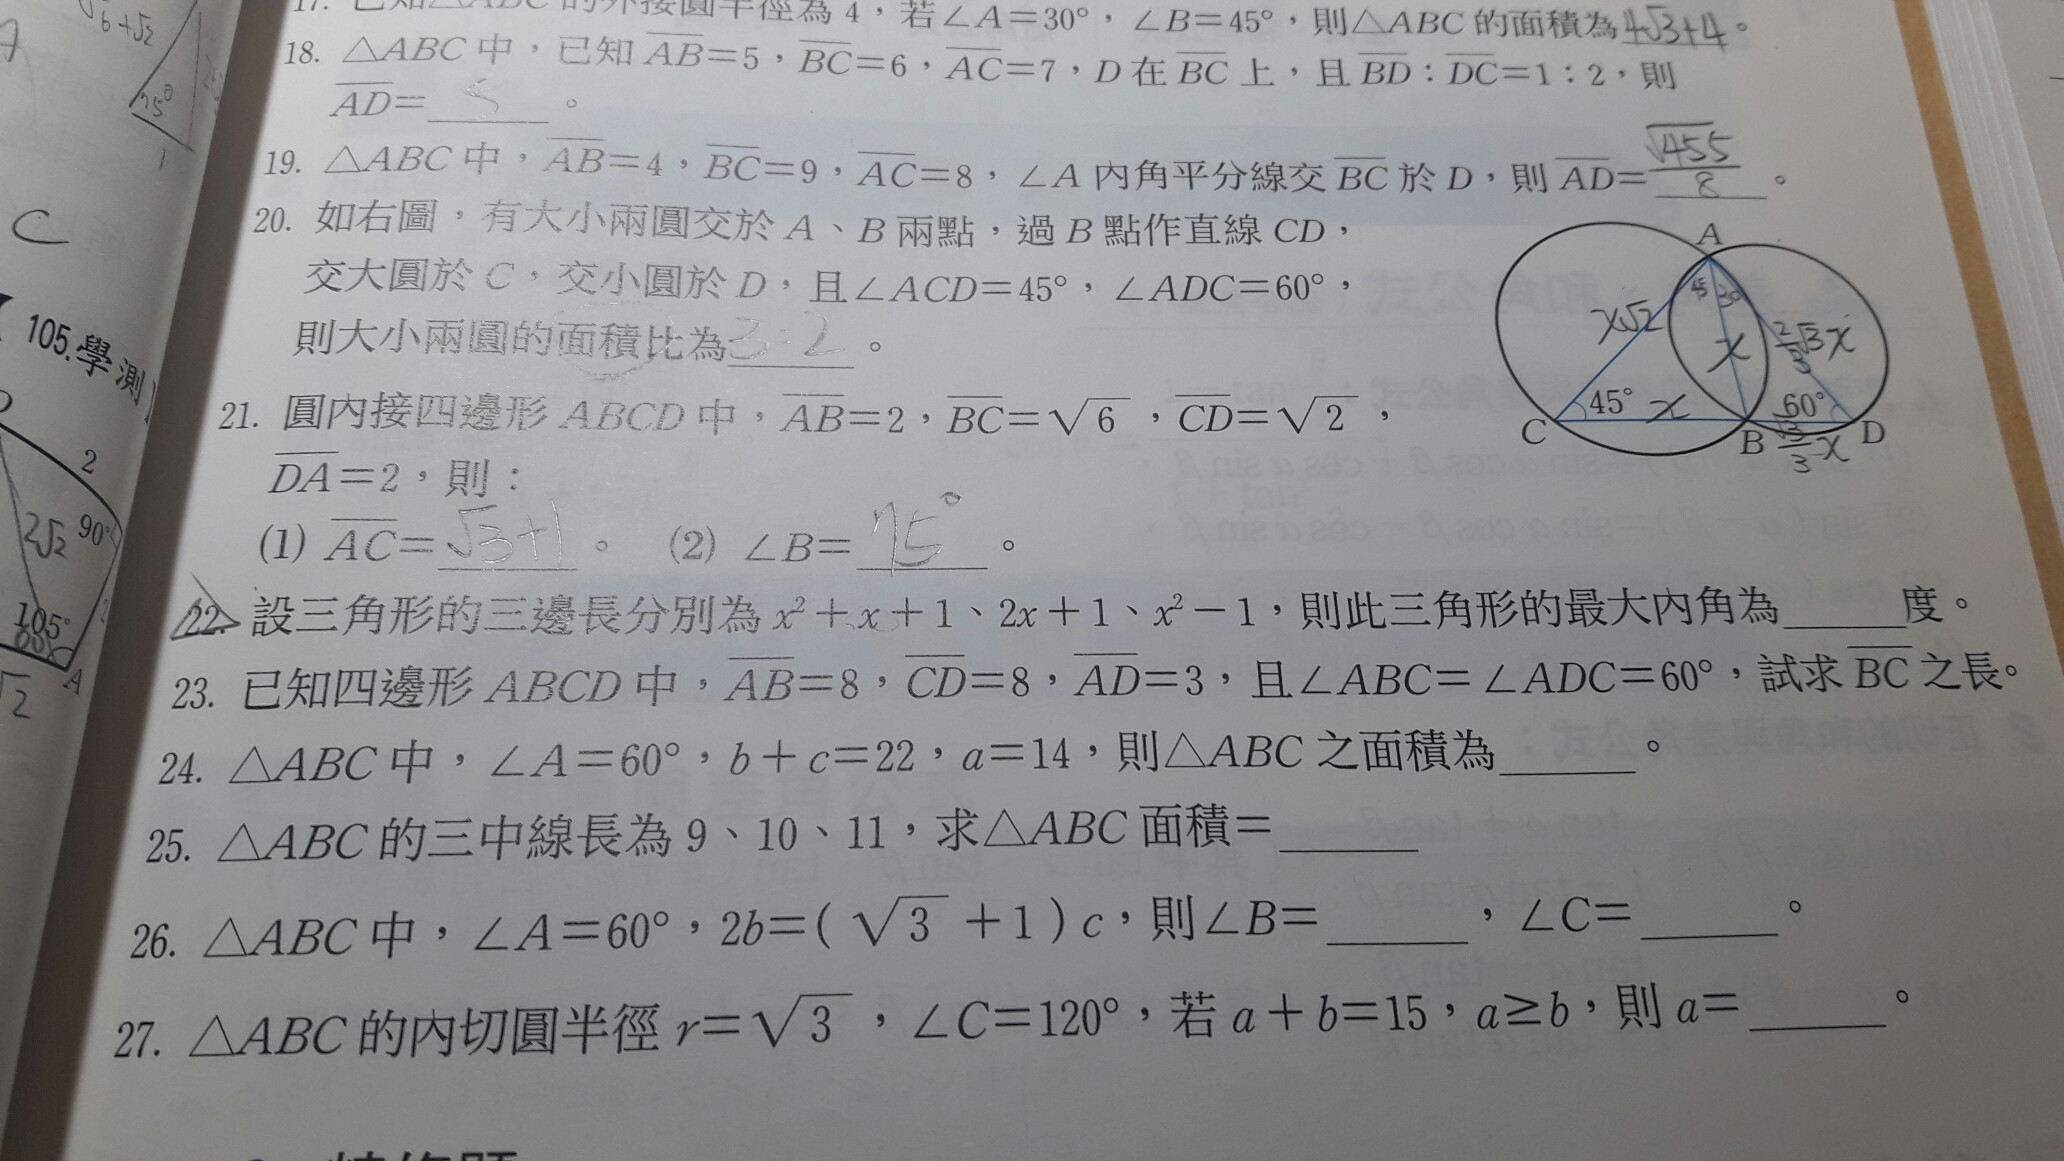 √6+√2
75°
1
C
105.學測
2
2√2
90°
2
105°
A
√2
17. 已知△ABC的外接圓半徑為 4,若∠A=30°,∠B=45°,則△ABC的面積為4√3+4。
18. △ABC 中,已知 AB=5,BC=6,AC=7,D 在 BC 上,且 BD:DC=1:2,則
AD=5。
19. △ABC 中,AB=4,BC=9,AC=8,∠A 內角平分線交 BC 於 D,則 AD=√455/8。
20. 如右圖,有大小兩圓交於 A、B 兩點,過 B 點作直線 CD,
交大圓於 C,交小圓於 D,且∠ACD=45°,∠ADC=60°,
則大小兩圓的面積比為3:2。
A
45 30
x√2
x
2/3√3x
45°
x
60°
C
B
√3/3 x
D
21. 圓內接四邊形 ABCD 中,AB=2,BC=√6,CD=√2,
DA=2,則:
(1) AC=√3+1。 (2) ∠B=75°。
22. 設三角形的三邊長分別為 x²+x+1、2x+1、x²-1,則此三角形的最大內角為______度。
23. 已知四邊形 ABCD 中,AB=8,CD=8,AD=3,且∠ABC=∠ADC=60°,試求 BC 之長。
24. △ABC 中,∠A=60°,b+c=22,a=14,則△ABC 之面積為______。
25. △ABC 的三中線長為 9、10、11,求△ABC 面積=______
26. △ABC 中,∠A=60°,2b=(√3+1)c,則∠B=______,∠C=______。
27. △ABC 的內切圓半徑 r=√3,∠C=120°,若 a+b=15,a≥b,則 a=______。